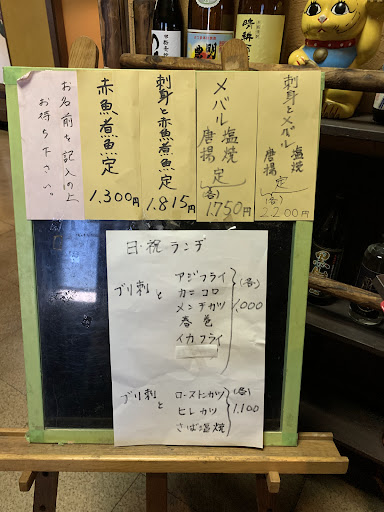 刺身とメバル 塩焼 唐揚 定
(各)
2,200円
メバル 塩焼 唐揚 定
(各)
1,750円
刺身と赤魚煮魚定
1,815円
赤魚煮魚定
1,300円
お名前を記入の上
お待ち下さい。
日・祝ランチ
ブリ刺と
アジフライ
カニコロ
メンチカツ
春巻
イカフライ
(各)
1,000
ブリ刺と
ローストンカツ
ヒレカツ
さば塩焼
(各)
1,100